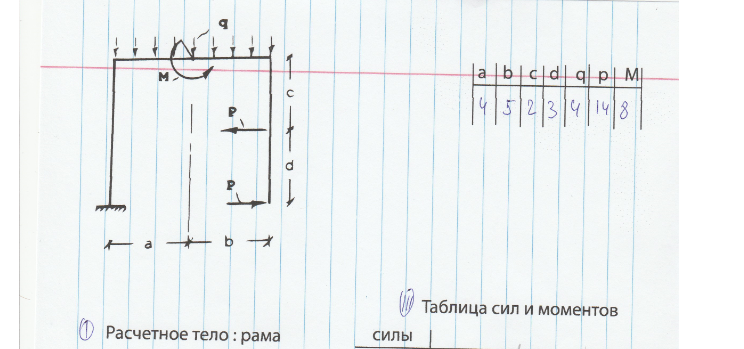 q
M
a b c d q p M
4 5 2 3 4 14 8
c
P
d
P
a b
III Таблица сил и моментов
1 Расчетное тело : рама
силы